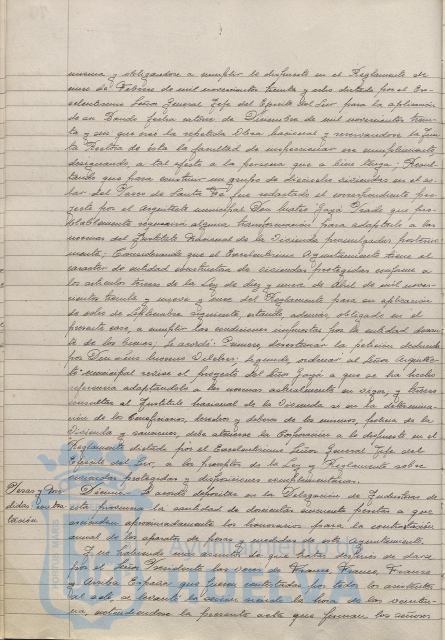 misma y obligandose a cumplir lo dispuesto en el Reglamento de
nueve de Febrero de mil novecientos treinta y ocho dictado por el Ex-
celentisimo Señor General Jefe del Ejercito del Sur para la aplicacion
de su Bando fecha catorce de Diciembre de mil novecientos trein-
ta y seis que creó la repetida Obra Nacional y reservandose la Jun-
ta Rectora de esta la facultad de inspeccionar su cumplimiento
designando a tal efecto a la persona que a bien tenga; Resul-
tando que para construir un grupo de dieciseis viviendas en el so-
lar del Paseo de Santa Fé fue redactado el correspondiente pro-
yecto por el Arquitecto municipal Don Mateo Gayá Prado que pro-
bablemente requerirá alguna transformación para adaptarlo a las
normas del Instituto Nacional de la Vivienda promulgadas posterior-
mente; Considerando que el Excelentisimo Ayuntamiento tiene el
caracter de entidad constructora de viviendas protegidas conforme a
los articulos tercero de la Ley de diez y nueve de Abril de mil nove-
cientos treinta y nueve y once del Reglamento para su aplicación
de ocho de Septiembre siguiente, estando, además, obligado en el
presente caso, a cumplir las condiciones impuestas por la entidad donan-
te de los bienes; Se acordó: Primero, desestimar la petición deducida
por Don Luis Moreno; Segundo, ordenar al Señor Arquitec-
to municipal revise el proyecto del Señor Gayá a que se ha hecho
referencia adaptandolo a las normas actualmente en vigor, y tercero
consultar al Instituto Nacional de la Vivienda si en la determina-
ción de los beneficiarios, derechos y deberes de los mismos, forma de la
vivienda y sanciones, debe atenerse la Corporación a lo dispuesto en el
Reglamento dictado por el Excelentisimo Señor General Jefe del
Ejercito del Sur, o a los preceptos de la Ley y Reglamento sobre
viviendas protegidas y disposiciones complementarias.
Pesas y Me-
didas contras-
tación
Décimo. Se acordó depositar en la Delegación de Industrias de
esta provincia la cantidad de doscientas cincuenta pesetas a que
ascienden aproximadamente los honorarios para la contrastación
anual de los aparatos de pesas y medidas de este Ayuntamiento.
Y no habiendo más asuntos de que tratar despues de darse
por el Señor Presidente las voces de Franco, Franco, Franco
y Arriba España que fueron contestadas por todos los asistentes
al acto, se levantó la sesión siendo la hora de las veintiu-
na, extendiendose la presente acta que firman los señores